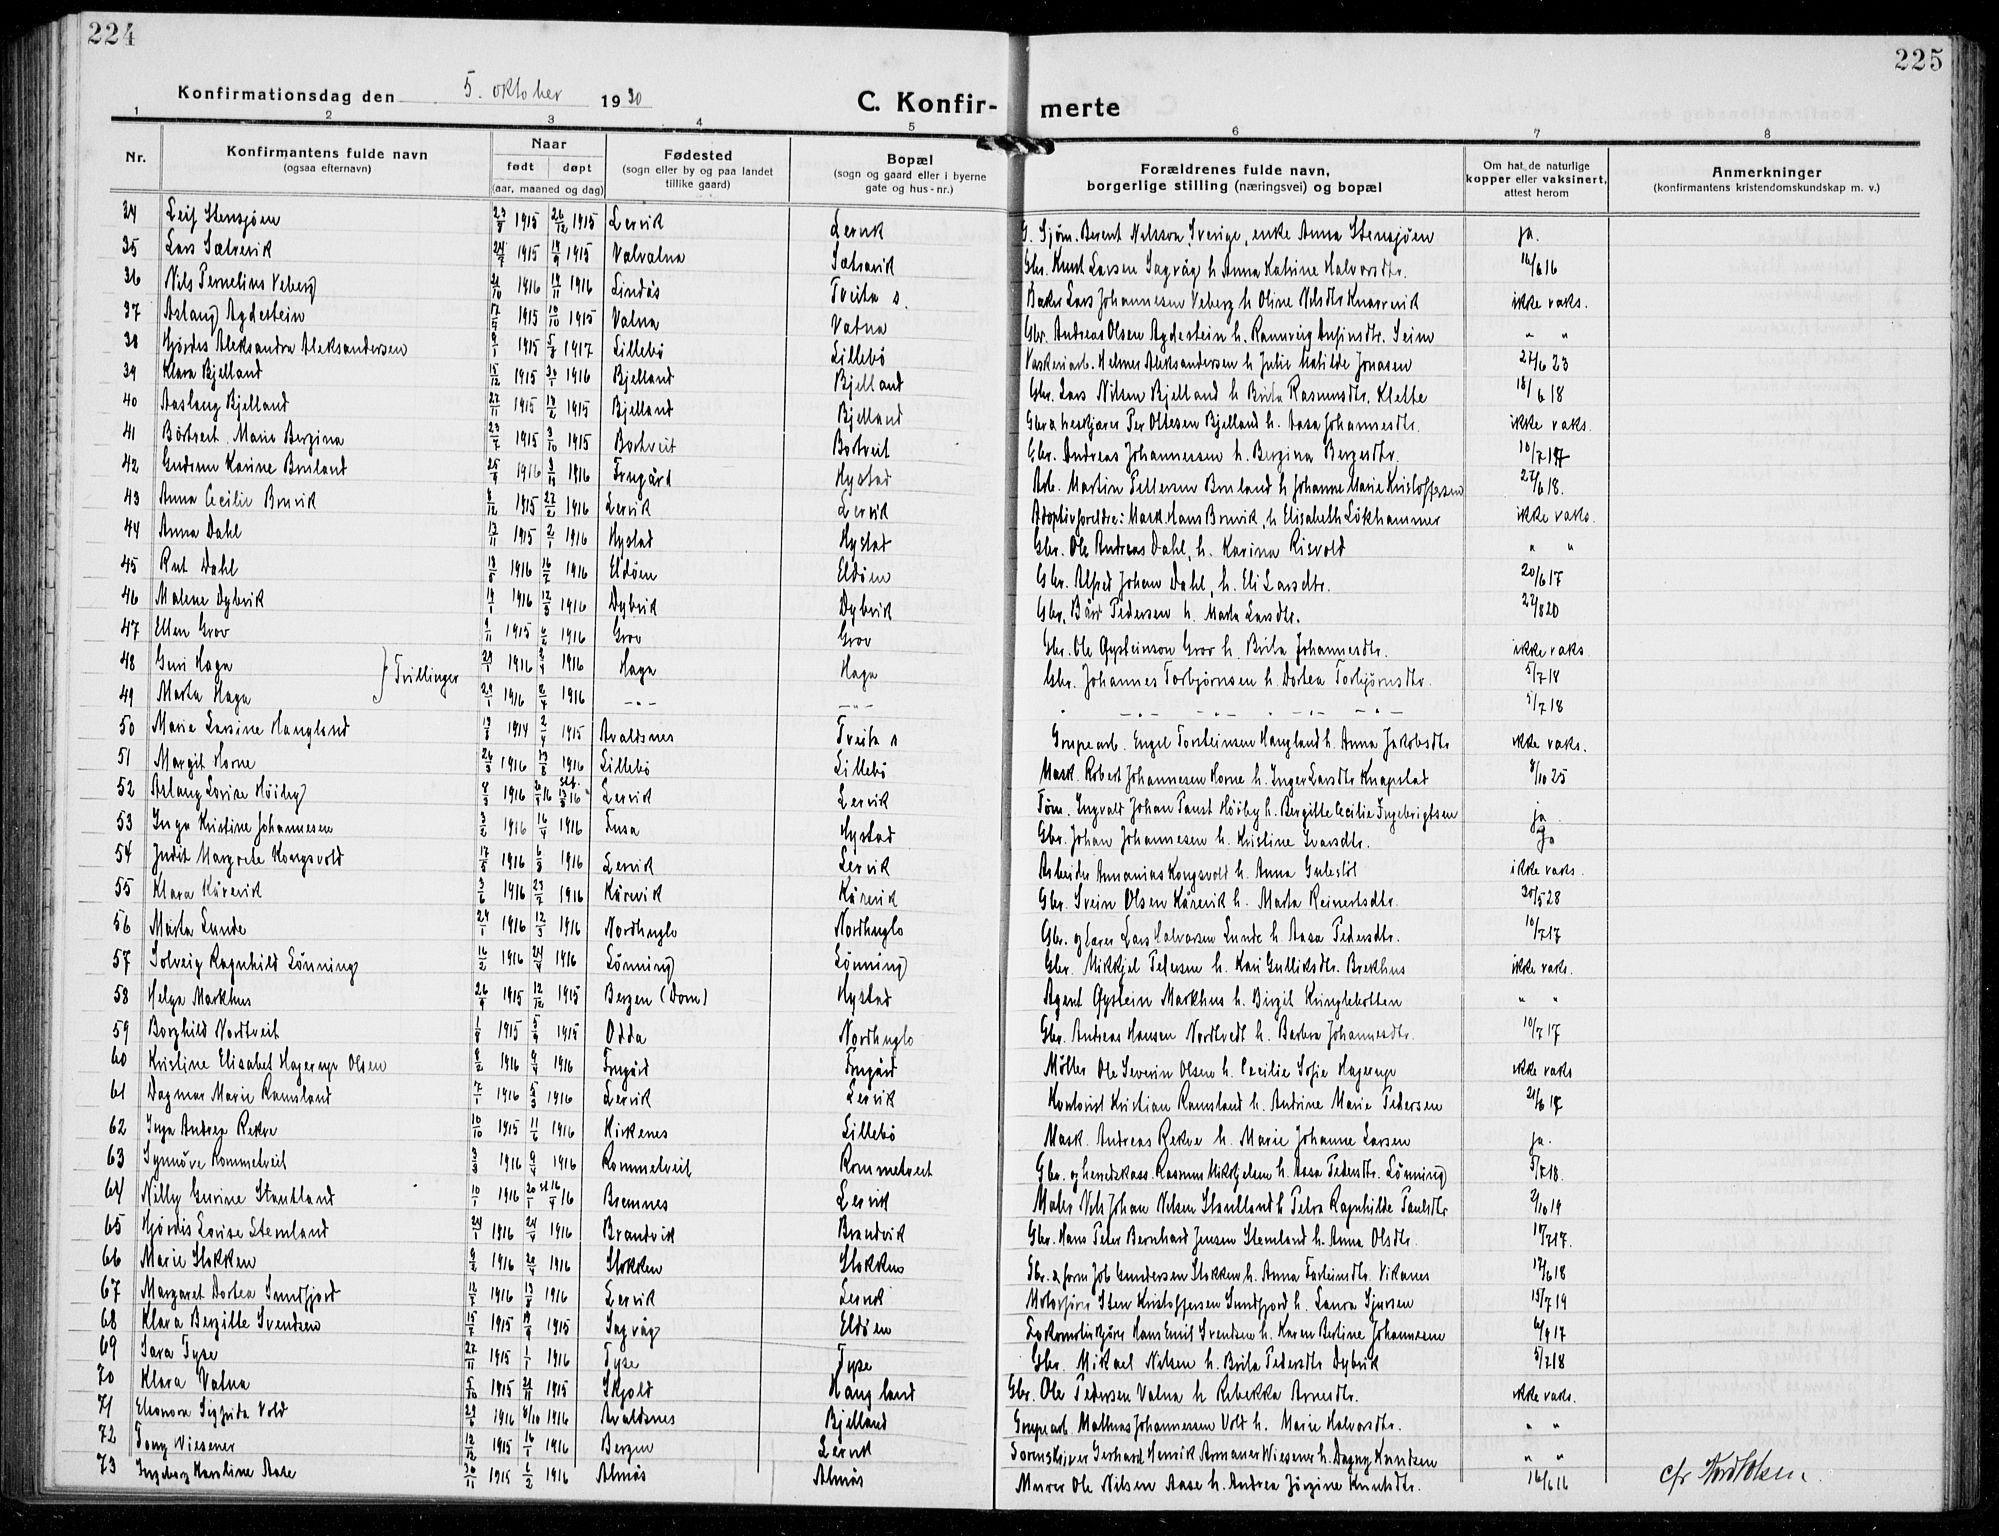 224
225
Konfirmationsdag den 5. oktober 1930
C. Konfir- merte
1 2 3 4 5 6 7 8
Nr.
Konfirmantens fulde navn
(ogsaa efternavn)
Naar
født døpt
(aar, maaned og dag)
Fødested
(sogn eller by og paa landet
tillike gaard)
Bopæl
(sogn og gaard eller i byerne
gate og hus-nr.)
Forældrenes fulde navn,
borgerlige stilling (næringsvei) og bopæl
Om hat de naturlige
kopper eller vaksinert,
attest herom
Anmerkninger
(konfirmantens kristendomskundskap m. v.)
34 Leif Stensjøen 1915 26/12 1915 Lervik Lervik G. Sjøm. Berent Nilsson, Sverige, enke Anna Stensjøen ja.
35 Lars Sætrevik 1915 1915 Valvatna Sætrevik Gbr. Knut Larsen Sagvåg h. Anna Katrine Halvorsdtr. 16/6 16
36 Nils Pernelius Veberg 1916 1916 Lindås Tveita s. Baker Lars Johannesen Veberg h. Oline Nilsdtr. Knarrevik ikke vaks.
37 Aslaug Agdestein 1915 10/10 1915 Vatna Vatna Gbr. Andreas Olsen Agdestein h. Rannveig Ansfinsdtr. Seim " "
38 Hjørdis Aleksandra Aleksandersen 1915 1917 Lillebö Lillebö Vaskeriarb. Helmer Aleksandersen h. Julie Matilde Jonasen 27/6 23
39 Klara Bjelland 15/12 1915 30/1 1916 Bjelland Bjelland Gbr. Lars Nilsen Bjelland h. Brita Rasmusdtr. Klette 18/6 18
40 Aaslaug Bjelland 1915 1915 Bjelland Bjelland Gbr. Per Oltesen Bjelland h. Aasa Johannesdtr. ikke vaks.
41 Börtveit Marie Bergina 23/7 1915 3/10 1915 Bortveit Bortveit Gbr. Andreas Johannessen h. Bergina Bergesdtr. 10/7 17
42 Gudrun Karine Bruland 1916 1916 Frugård Hystad Arb. Martin Pettersen Bruland h. Johanne Marie Kristoffersen 27/6 18.
43 Anna Cecilie Bruvik 8/12 1915 27/2 1916 Lervik Lervik Adoptivforeldre: Mask. Hans Bruvik, h. Elisabeth Lökhammer ikke vaks.
44 Anna Dahl 1915 2/1 1916 Hystad Hystad Gbr. Ole Andreas Dahl, h. Karina Risvold " "
45 Rut Dahl 1916 16/7 1916 Eldöen Eldöen Gbr. Alfred Johan Dahl, h. Eli Larsdtr. 20/6 17
46 Malene Dybvik 1916 12/3 1916 Dybvik Dybvik Gbr. Bård Pedersen h. Marta Larsdtr. 22/8 20
47 Ellen Grov 9/11 1915 6/2 1916 Grov Grov Gbr. Ole Øysteinson Grov h. Brita Johannesdtr. ikke vaks.
48 Guri Haga } Tvillinger 29/1 1916 2/4 1916 Haga Haga Gbr. Johannes Torbjörnsen h. Dortea Torbjörnsdtr. 5/7 18
49 Marta Haga 29/1 1916 2/4 1916 -"- -"- " -"- -"- -"- -"- 5/7 18
50 Marie Larsine Haugland 1914 2/4 1915 Avaldsnes Tveita s Grupearb. Engel Torsteinsen Haugland h. Anna Jakobsdtr ikke vaks.
51 Margit Horne 26/3 1916 13/8 1916 Lillebö Lillebö Mask. Robert Johannesen Horne h. Inger Larsdtr. Knapstad 8/10 25
52 Aslaug Lovise Höiby 1916 Lervik Lervik Töm. Ingvald Johan Faust Höiby h. Bergitte Cecilie Ingebrigtsen ja
53 Inga Kristine Johannesen 3/2 1916 16/4 1916 Fusa Hystad Gbr. Johan Johannesen h. Kristine Ivarsdtr. ja
54 Judit Margrete Kongsvold 17/5 1916 6/8 1916 Lervik Lervik Arbeider Annanias Kongsvold h. Anna Gulestöl ikke vaks.
55 Klara Kårevik 3/6 1916 23/7 1916 Kårevik Kårevik Gbr. Svein Olsen Kårevik h. Marta Reinertsdtr. 30/5 28
56 Marta Lunde 24/1 1916 12/3 1916 Nordhuglo Nordhuglo Gbr. og lærer Lars Halvorsen Lunde h. Aasa Pedersdtr. 10/7 17
57 Solveig Ragnhild Lönning 16/2 1916 24/4 1916 Lönning Lönning Gbr. Mikkjel Pedersen h. Kari Gulliksdtr. Brekhus ikke vaks.
58 Helga Markhus 26/9 1915 12/12 1915 Bergen (Dom) Hystad Agent Øystein Markhus h. Birgit Kringlebotten " "
59 Borghild Nordtveit 1/8 1915 5/9 1915 Odda Nordhuglo Gbr. Andreas Hansen Nordtvedt h. Barbra Johannesdtr. 10/7 17
60 Kristine Elisabet Hagerup Olsen 8/2 1916 9/4 1916 Frugård Frugård Möller Ole Severin Olsen h. Cecilie Sofie Hagerup ikke vaks
61 Dagmar Marie Ramsland 7/1 1916 5/3 1916 Lervik Lervik Kontorist Kristian Ramsland h. Andrine Marie Pedersen 21/6 17
62 Inga Andrea Rekve 10/10 1915 11/6 1916 Kirkenes Lillebö Mask. Andreas Rekve h. Marie Johanne Larsen ja.
63 Synnöve Rommetveit 1916 9/4 1916 Rommetveit Rommetveit Gbr. og herredskass. Rasmus Mikkjelsen h. Aasa Pedersdtr. Lönning 5/7 18.
64 Nelly Gurine Stautland 10/1 1916 Bremnes Lervik Maler Nils Johan Nilsen Stautland h. Petra Ragnhilde Paulsdtr 2/10 19
65 Hjördis Lovise Stemland 24/1 1916 24/4 1916 Brandvik Brandvik Gbr. Hans Peter Bernhard Jensen Stemland h. Anna Olsdtr. 10/7 17.
66 Marie Stokken 9/2 1916 24/4 1916 Stokken Stokken Gbr. & form. Job Gundersen Stokken h. Anna Torsteinsdtr. Vikanes 17/6 18
67 Margaret Dortea Sundfjord 1916 13/8 1916 Lervik Lervik Motorförer Sten Kristoffersen Sundfjord h. Laura Sjursen 15/7 19
68 Klara Bergitte Svendsen 15/7 1915 19/9 1915 Sagvåg Eldöen Lokomotivkjörer Hans Emil Svendsen h. Karen Bertine Johannesen 6/9 17
69 Sara Tyse 27/11 1915 1/1 1916 Tyse Tyse Gbr. Mikael Nilsen h. Brita Pedersdtr Dybvik 5/7 18
70 Klara Vatna 5/10 1915 21/11 1915 Skjold Haugland Gbr. Ole Pedersen Vatna h. Rebekka Arnesdtr. ikke vaks.
71 Eleonora Sigfrida Vold 29/6 1916 8/10 1916 Avaldsnes Bjelland Grupearb. Mathias Johannessen Vold h. Marie Halvorsdtr. " "
72 Tony Wiesener 12/12 1915 16/1 1916 Bergen Lervik Sorenskriver Gerhard Henrik Armauer Wiesener h. Dagny Knudsen " "
73 Ingeborg Karoline Aase 30/11 1915 6/2 1916 Almås Almås Murer Ole Nilsen Aase h. Andrea Jörgine Knutsdtr. 16/6 16